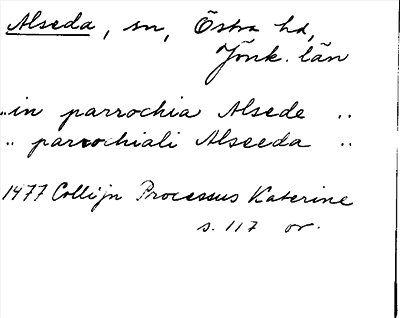 Alseda, sn, Östra hd,
Jönk. län
"in parrochia Alsede ..
" parrochiali Alseeda ..
1477 Collijn Processus Katerine
s. 117 or.